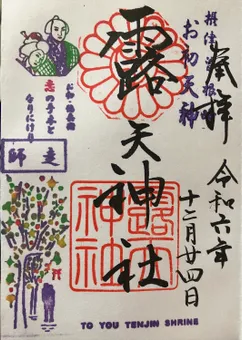 奉拝
お初天神
令和六年
十二月廿四日
露天神社
露天
神社
恋の手本と
なりにけり
師走
TO YOU TENJIN SHRINE